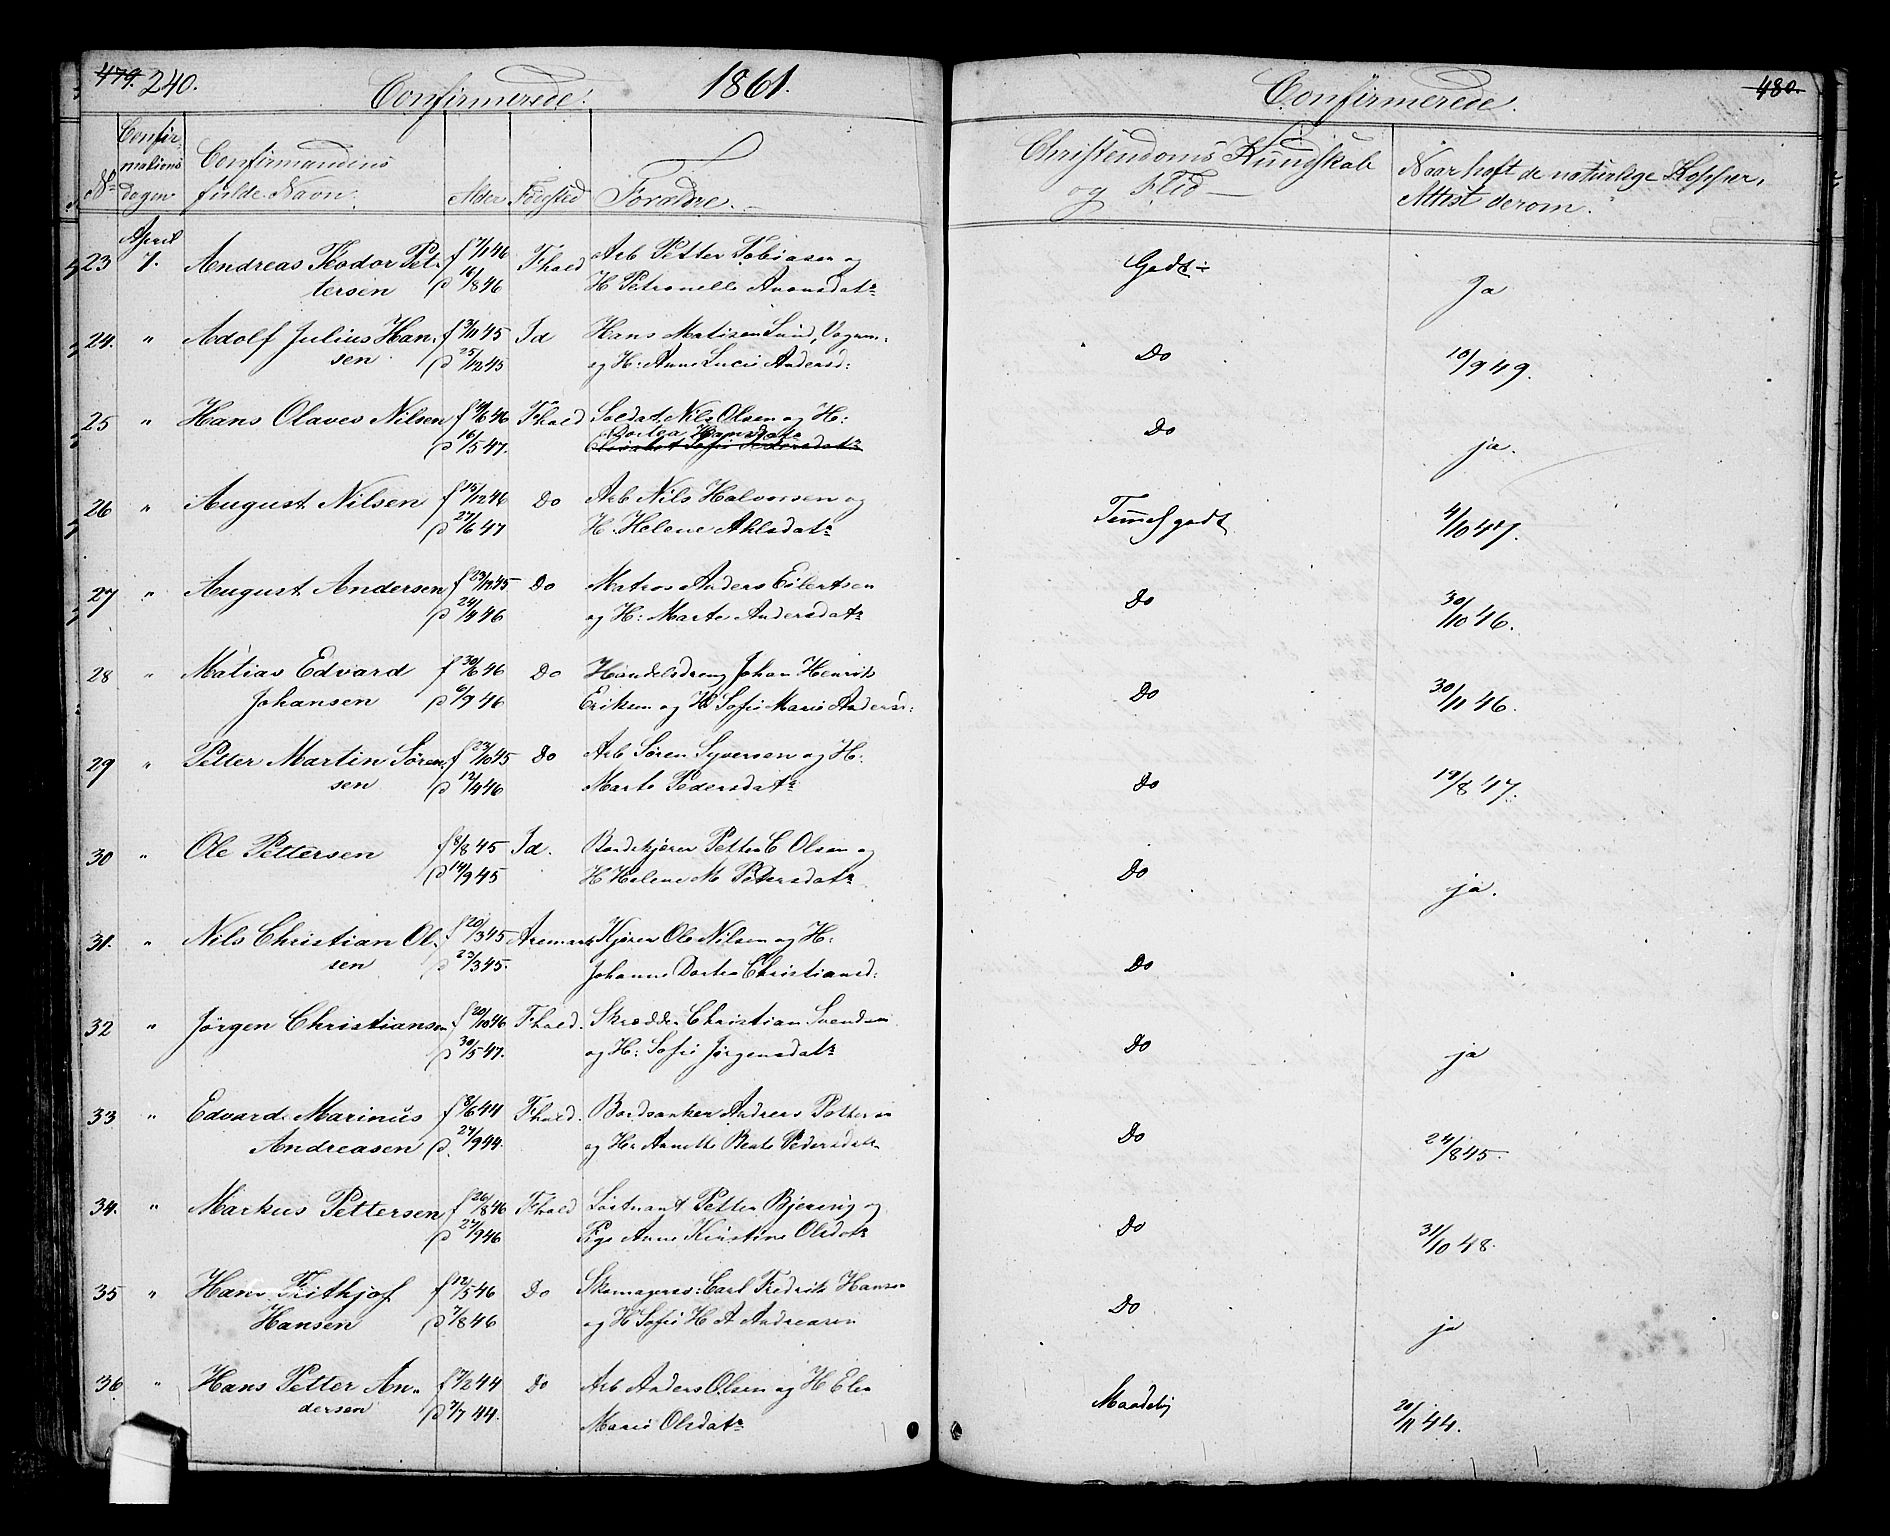 479. 240. Confirmerede. 1861.
No Confirmations Dagen Confirmandens fulde Navn. Alder Fødested Forældre.
April
23 7. Andreas Teodor Pet- f 7/1 46 Fhald Arb Petter Tobiasen og
tersen d 16/8 46 H Petronelle
24. " Adolf Julius Han- f 3/11 45 Id Hans Matisen Lund,
sen d 25/12 45 og H: Anne Lucie Andersd:
25 " Hans Olaves Nilsen 46 Fhald Soldat Nils Olsen og H:
d 16/5 47. Dortea Hansdatr
26 " August Nilsen f 15/12 46 Do Arb Nils Halvorsen og
d 27/6 47 H. Helene
27 " August Andersen f 23/12 45 Do Matros Anders Eilertsen
d 24/4 46 og H: Marte Andersdatr
28 " Matias Edvard f 30/6 46 Do Handelsdreng Johan Henrik
Johansen d 6/9 46 Eriksen og H Sofie Marie Andersd:
29 " Petter Martin Søren- f 23/10 45 Do Arb Søren Syversen og H.
sen d 12/4 46 Marte Pedersdatr
30 " Ole Pettersen f 9/8 45 Id. Petter C Olsen og
d 14/9 45 H Helene M Petersdatr
31. " Nils Christian Ol- f 20/3 45 Aremark Kjører Ole Nilsen og H:
sen d 23/3 45. Johanne Dortea Christiansd:
32 " Jørgen Christiansen f 20/10 46 Fhald. Skrædder Christian Svendsen
d 30/5 47. og H: Sofie Jørgensdatr
33 " Edvard Marinus f 3/6 44 Fhald. Andreas Pettersen
Andreasen d. 27/9 44. og H: Annette Beate Pedersdatr
34. " Markus Pettersen f 26/8 46 Fhald Løitnant Petter Bjerring og
d 27/9 46 Pige Anne Kirstine Olsdatr
35 " Hans Frithjof f 12/5 46 Do Skomagers: Carl Fredrik Hansen
Hansen d 7/8 46 og H Sofie H A Andreasen
36 " Hans Petter An- f 7/2 44 Do Arb Anders Olsen og H Elen
dersen d 7/7 44. Marie Olsdatr
Confirmerede. 480.
Christendoms Kundskab og Flid — Naar haft de naturlige Kopper, Attest derom.
Godt Ja
Do 10/9 49.
Do ja.
Temel godt 4/10 47.
Do 30/10 46.
Do 30/11 46.
Do 19/8 47.
Do ja.
Do
Do ja
Do 24/8 45.
Do 31/10 48.
Do ja
Maadelig 20/11 44.